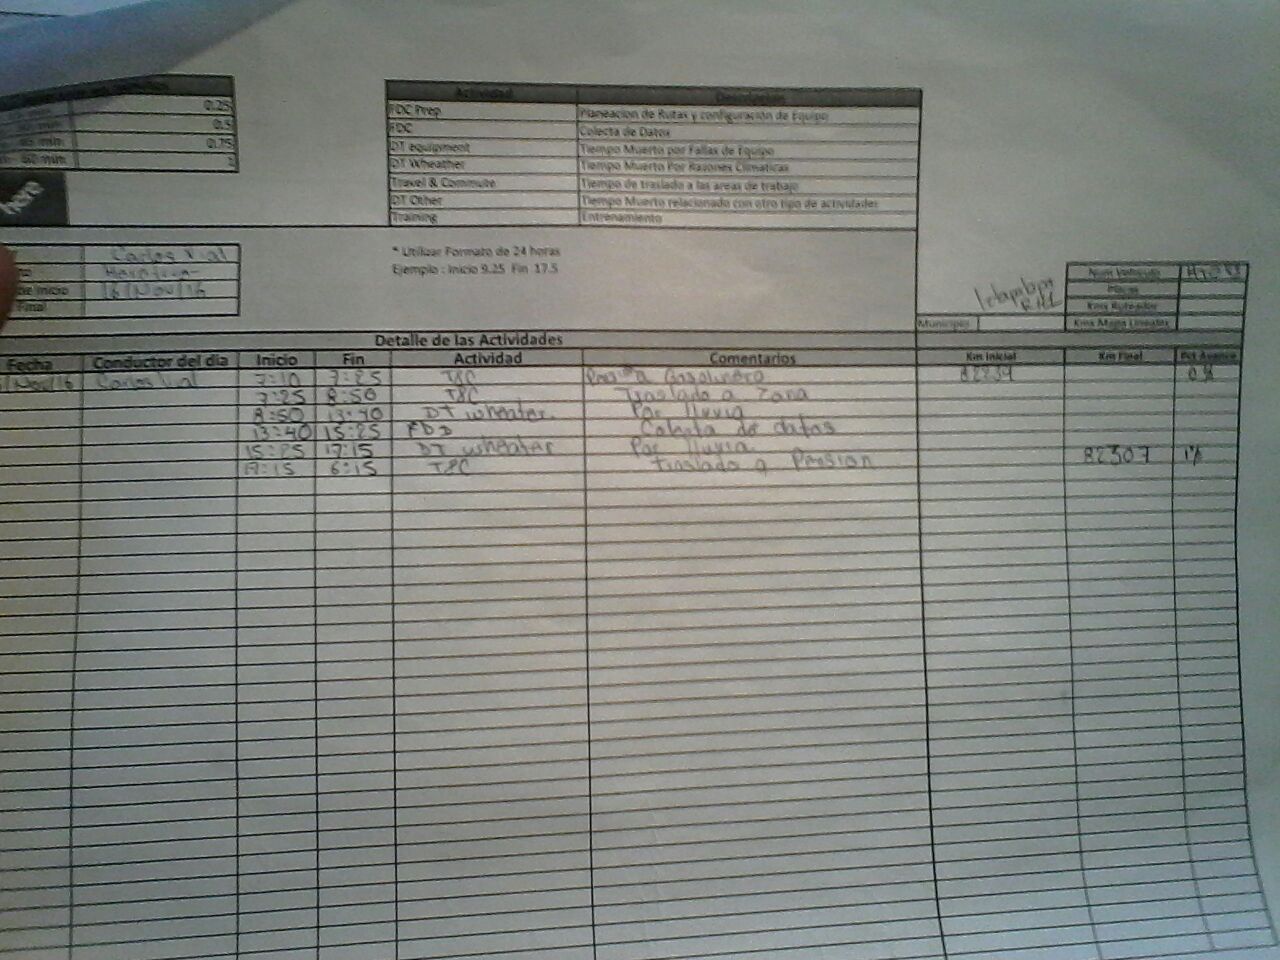 Actividad Descripcion
0.25 FDC Prep Planeacion de Rutas y configuración de Equipo
0.5 FDC Colecta de Datos
0.75 DT equipment Tiempo Muerto por Fallas de Equipo
60 min 1 DT Wheather Tiempo Muerto Por Razones Climaticas
Travel & Commute Tiempo de traslado a las areas de trabajo
DT Other Tiempo Muerto relacionado con otro tipo de actividades
Training Entrenamiento
hora
Carlos
* Utilizar Formato de 24 horas
Ejemplo : Inicio 9.25 Fin 17.5
de Inicio 16/Nov/16
Final
Num Vehiculo
Placas
Kms Ruteados
Municipio Kms Mapa Lineales
Detalle de las Actividades
Fecha Conductor del día Inicio Fin Actividad Comentarios Km Inicial Km Final Pct Avance
Nov/16 Carlos 7:10 7:25 T&C Gasolinera 82239
7:25 8:50 T&C Traslado a Zona
8:50 13:40 DT wheater Por lluvia
13:40 15:25 Colecta de datos
15:25 17:15 DT wheater Por lluvia
17:15 6:15 T&C traslado a 82307 1%